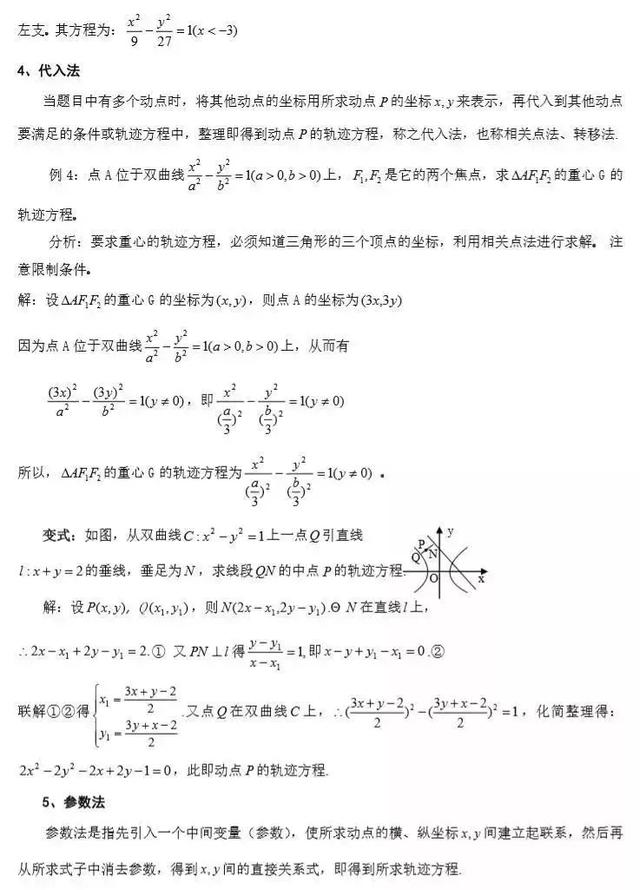 左支。其方程为：x²/9 − y²/27 = 1(x < −3)
4、代入法
当题目中有多个动点时，将其他动点的坐标用所求动点 P 的坐标 x, y 来表示，再代入到其他动点
要满足的条件或轨迹方程中，整理即得到动点 P 的轨迹方程，称之代入法，也称相关点法、转移法.
例 4：点 A 位于双曲线 x²/a² − y²/b² = 1(a > 0, b > 0) 上，F₁, F₂ 是它的两个焦点，求 ΔAF₁F₂ 的重心 G 的
轨迹方程。
分析：要求重心的轨迹方程，必须知道三角形的三个顶点的坐标，利用相关点法进行求解。 注
意限制条件。
解：设 ΔAF₁F₂ 的重心 G 的坐标为 (x, y)，则点 A 的坐标为 (3x,3y)
因为点 A 位于双曲线 x²/a² − y²/b² = 1(a > 0, b > 0) 上，从而有
(3x)²/a² − (3y)²/b² = 1(y ≠ 0)，即 x²/(a/3)² − y²/(b/3)² = 1(y ≠ 0)
所以，ΔAF₁F₂ 的重心 G 的轨迹方程为 x²/(a/3)² − y²/(b/3)² = 1(y ≠ 0) 。
变式：如图，从双曲线 C : x² − y² = 1 上一点 Q 引直线
l : x + y = 2 的垂线，垂足为 N，求线段 QN 的中点 P 的轨迹方程.
y
P
Q
N
O
x
解：设 P(x, y), Q(x₁, y₁)，则 N(2x − x₁,2y − y₁).Θ N 在直线 l 上，
∴ 2x − x₁ + 2y − y₁ = 2.① 又 PN ⊥ l 得 (y − y₁)/(x − x₁) = 1, 即 x − y + y₁ − x₁ = 0.②
联解①②得 { x₁ = (3x + y − 2)/2, y₁ = (3y + x − 2)/2 .又点 Q 在双曲线 C 上，∴ ((3x + y − 2)/2)² − ((3y + x − 2)/2)² = 1，化简整理得：
2x² − 2y² − 2x + 2y − 1 = 0，此即动点 P 的轨迹方程.
5、参数法
参数法是指先引入一个中间变量（参数），使所求动点的横、纵坐标 x, y 间建立起联系，然后再
从所求式子中消去参数，得到 x, y 间的直接关系式，即得到所求轨迹方程.